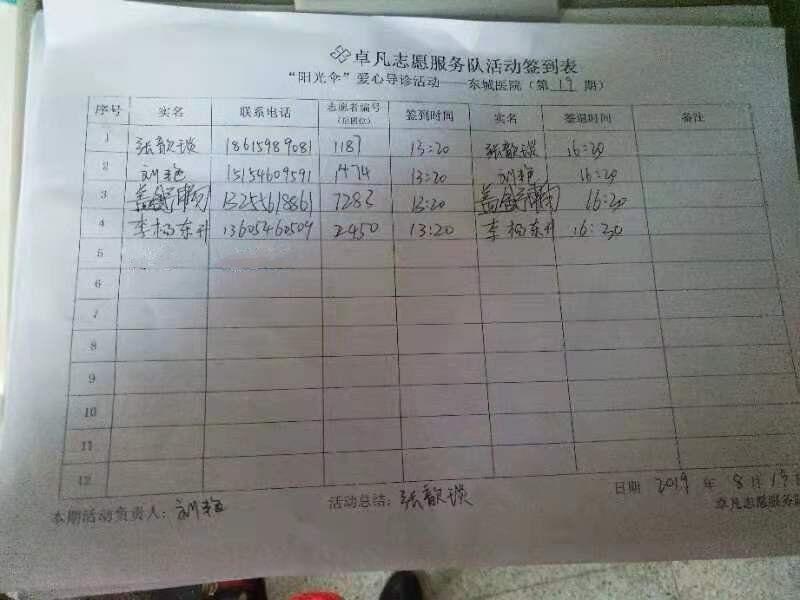 卓凡志愿服务队活动签到表
“阳光伞”爱心导诊活动——东城医院（第 19 期）
序号 实名 联系电话 志愿者编号（后四位） 签到时间 实名 签退时间 备注
1 张歆琰 18615989081 1187 13:20 张歆琰 16:20
2 刘艳 15154609591 1474 13:20 刘艳 16:20
3 13255618861 7283 13:20 16:20
4 李杨东升 13605460509 2450 13:20 李杨东升 16:20
5
6
7
8
9
10
11
12
日期 2019 年 8月
本期活动负责人：刘艳 活动总结：张歆琰 卓凡志愿服务